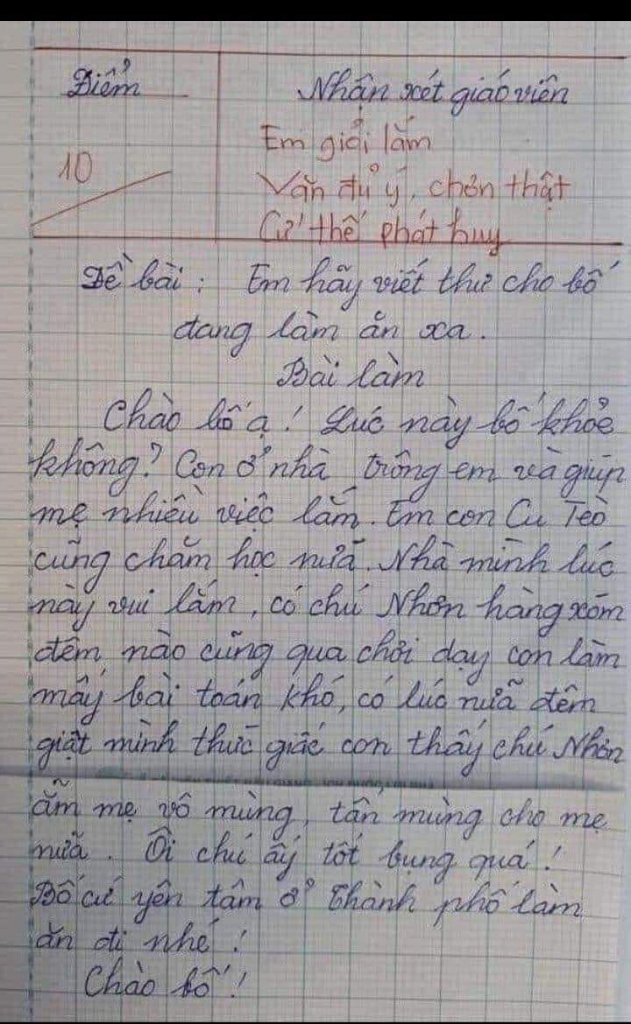 Điểm
Nhận xét giáo viên
10
Em giỏi lắm
Văn đủ ý, chơn thật
Cứ thế phát huy
Đề bài : Em hãy viết thư cho bố
đang làm ăn xa.
Bài làm
Chào bố ạ! Lúc này bố khỏe
không? Con ở nhà trông em và giúp
mẹ nhiều việc lắm. Em con Cu Tèo
cũng chăm học nữa. Nhà mình lúc
này vui lắm, có chú Nhơn hàng xóm
đêm nào cũng qua chơi dạy con làm
mấy bài toán khó, có lúc nữa đêm
giật mình thức giấc con thấy chú Nhơn
ẵm mẹ vô mùng, tấn mùng cho mẹ
nữa. Ôi chú ấy tốt bụng quá!
Bố cứ yên tâm ở thành phố làm
ăn đi nhé!
Chào bố!